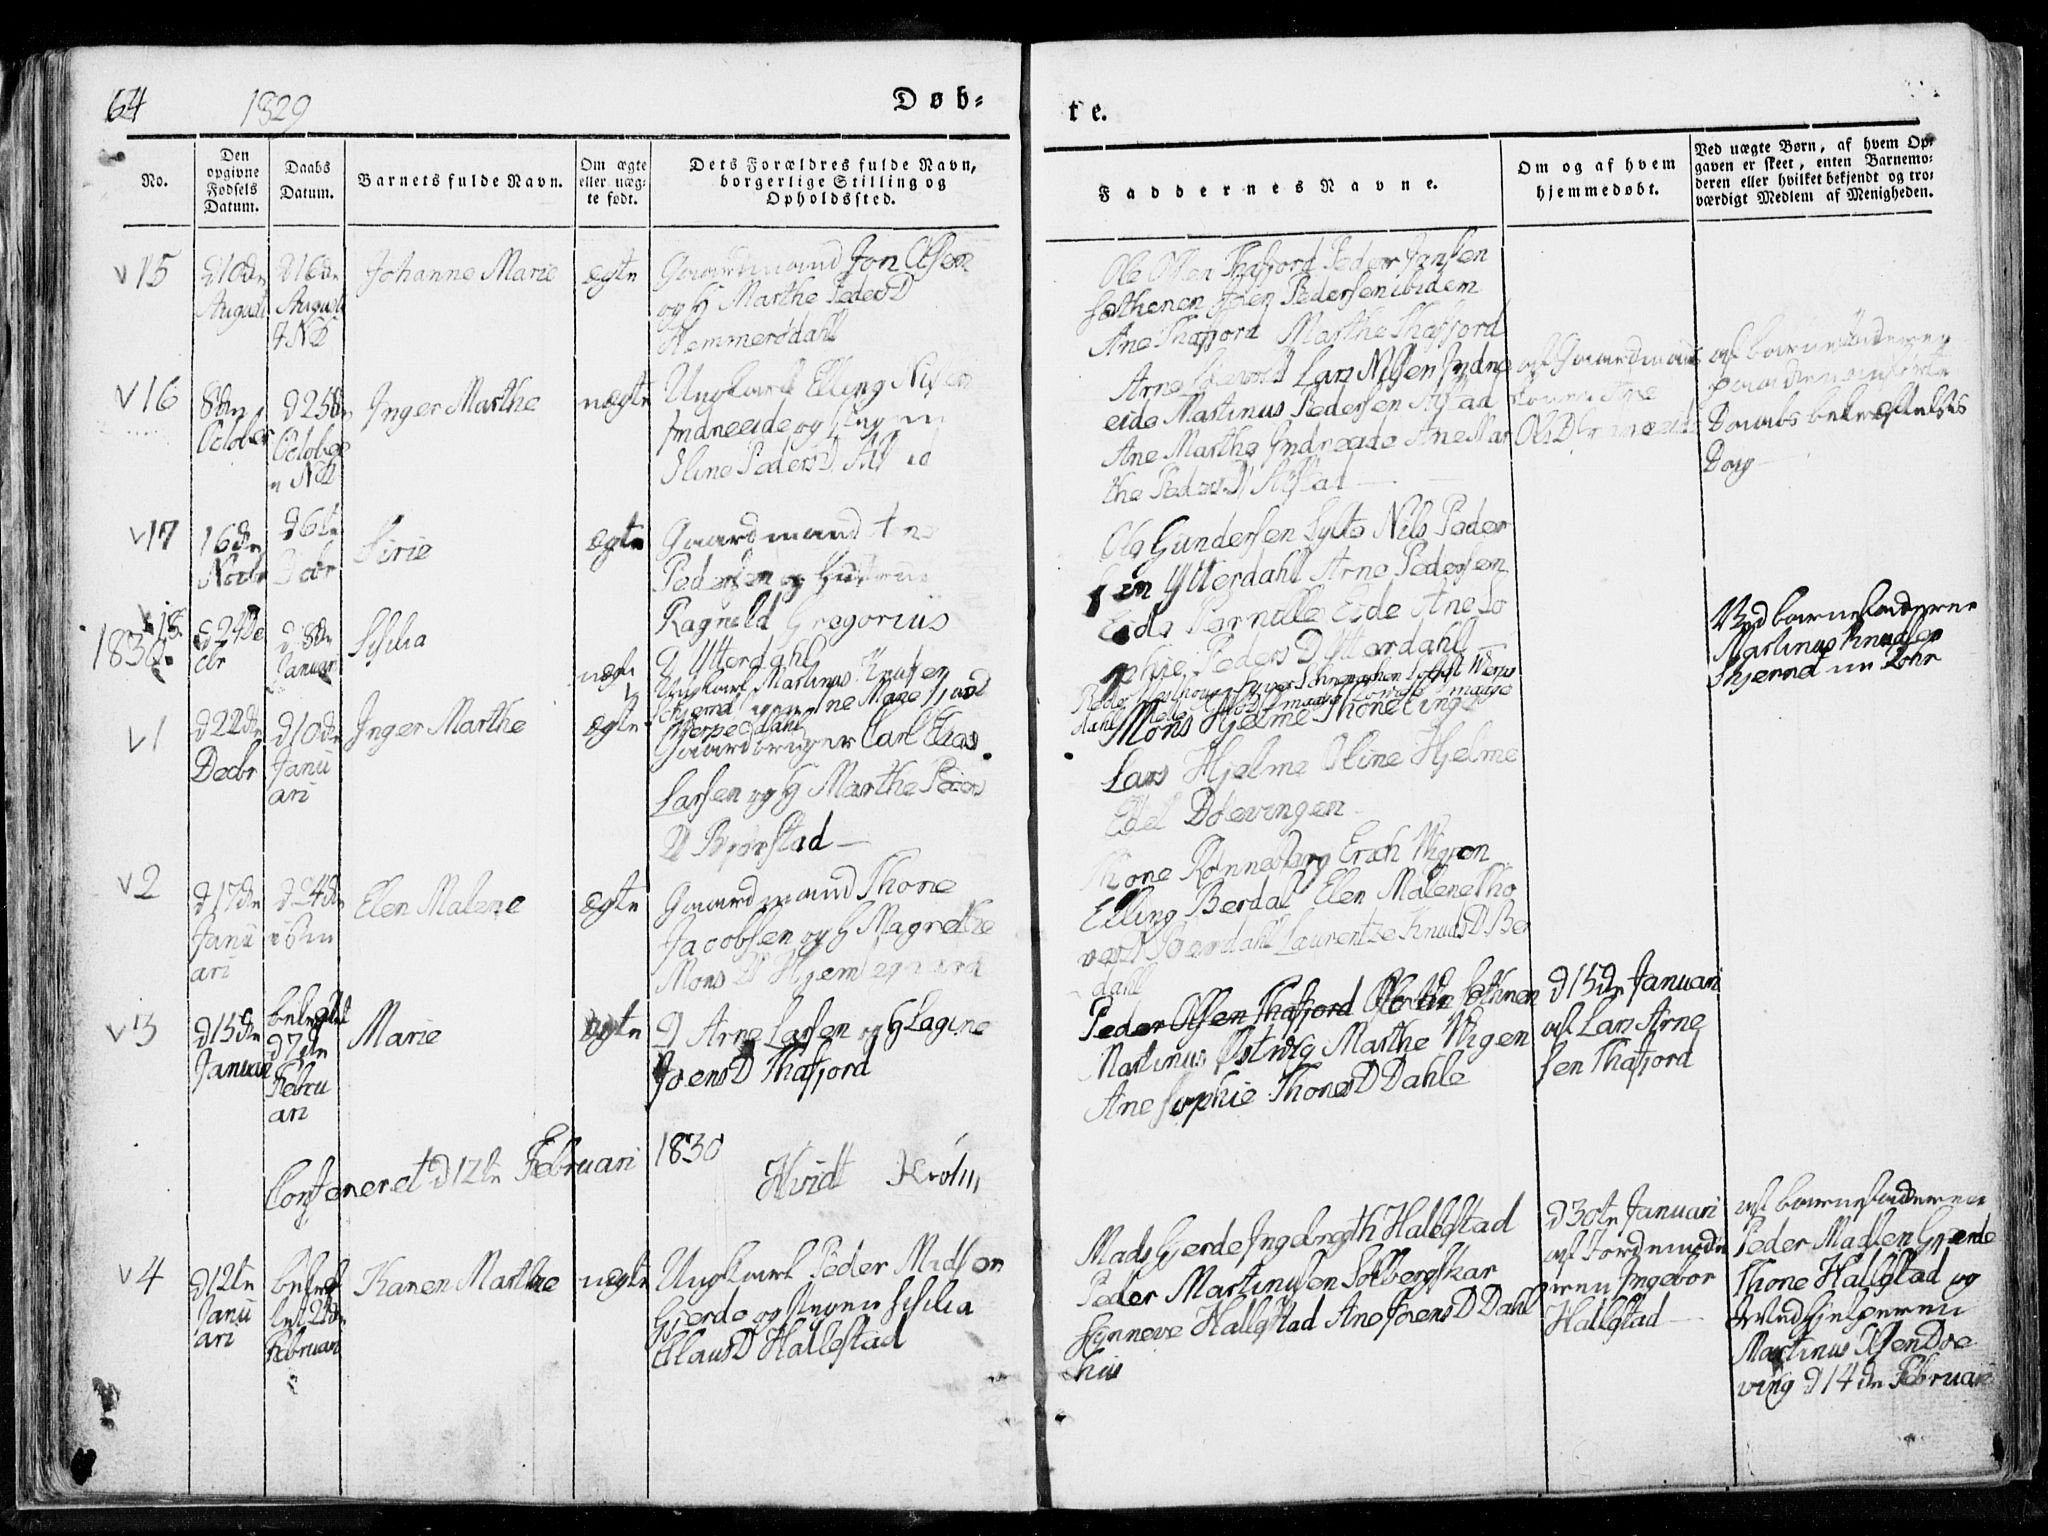 64 1829 Døb-
te.
No.
Den opgivne Fødsels Datum.
Daabs Datum.
Barnets fulde Navn.
Om ægte eller uæg-
te født.
Dets Forældres fulde Navn,
borgerlige Stilling og
Opholdssted.
Faddernes Navne.
Om og af hvem
hjemmedøbt.
Ved uægte Børn, af hvem Op-
gaven er skeet, enten Barnemo-
deren eller hvilket bekjendt og tro-
værdigt Medlem af Menigheden.
15
d 10de
August
d 16de
August
Johanne Marie
egte
Gaardmand Jon Olsen
og H Marthe PedersD
Hemmersdahl
Ole Olsen Thafjord Peder Jansen
Pedersen ibidem
Ane Thafjord Marthe Thafjord
16
8de
October
d 25de
October
Inger Marthe
uegte
Ungkarl Elling Nilsen
Indreeide og
Oline PedersD
Lars Nilsen Indre
eide Martinus Pedersen
Ane Marthe Indreeide Ane Mar
the PedersD
af Gaardmand
OlsD
af barnefaderen
paa
Daabs bekræftelses
Dag
17
16de
Novbr
d 6te
Decbr
Sirie
egte
Gaardmand
Pedersen og Hustrue
Ragnild Gregorius
D Ytterdahl
Ole Gundersen Sylte Nils Peder
sen Ytterdahl Arne Pedersen
Eide Pernille Eide Ane So
phie PedersD Ytterdahl
18
1830
d 24de
d 8de
Januar
Sisilia
uegte
Ungkarl Martinus Knutsen
Ved barnefaderen
Martinus Knudsen
1
d 22de
Decbr
d 10de
Janu
ari
Inger Marthe
egte
Gaardbruger Carl Elias
Larsen og H Marthe Peders
D Bjørstad
Mons Hjelme Thone
Lars Hjelme Oline Hjelme
Edel Døvingen
2
d 17de
Janu
ari
d 24de
ibm
Elen Malene
egte
Gaardmand Thone
Jacobsen og H Magrethe
Mons D
Thone Rønneberg Erich
Elling Berdal Elen Malene Tho
Laurentze KnudsD Ber
dahl
3
d 15de
Januar
d 7de
Febru
ari
Marie
egte
D Arne Larsen og H Lagine
JoensD Thafjord
Peder Olsen Thafjord
Martinus Østvig Marthe Vigen
Ane Sophie ThonesD Dahle
d 15de Januari
af Lars Arne
sen Thafjord
Confereret d 12te Februari 1830
Hvidt Krohn
4
d 12te
Janu
ari
bekref
tet 21de
Februari
Karen Marthe
uegte
Ungkarl Peder Madsen
Gjerde og Sisilia
ElausD Hallestad
Mads Gjerde Ingebregth Hallestad
Peder Martinusen Solbergskar
Synneve Hallestad Ane JoensD Dahl
hus
d 30te Januari
af Jordemode
ren Ingebor
Hallestad
af barnefaderen
Peder Madsen Gjerde
Thone Hallestad og
Medhjelperen
Martinus Olsen Dø
ving d 14de Februari